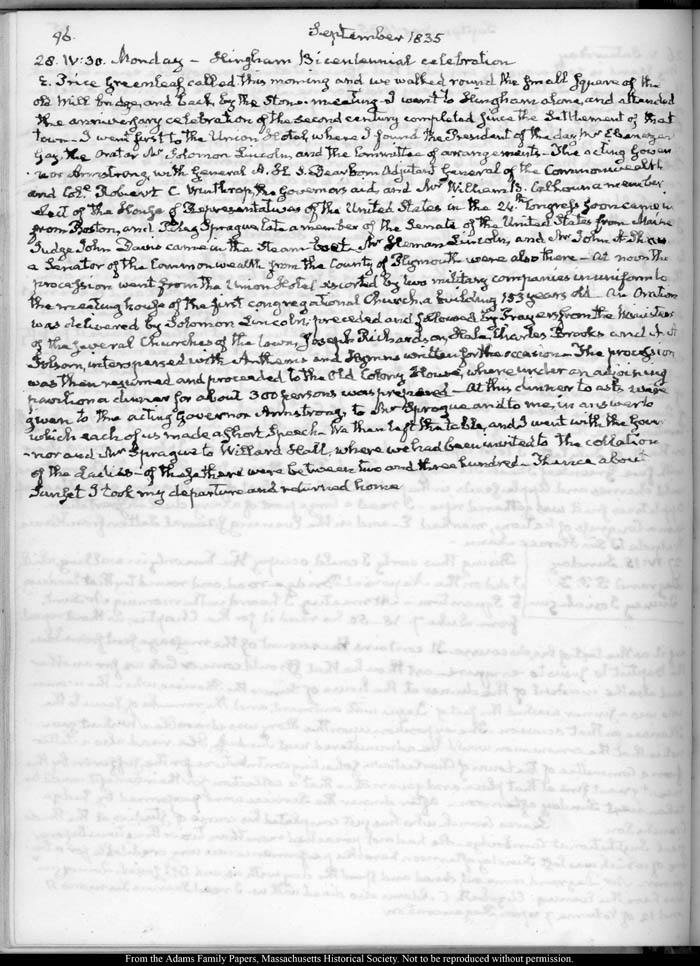 96.
September 1835
28. IV:30. Monday – Hingham Bicentennial celebration
E. Price Greenleaf called this morning and we walked round the small square of the
old Mill bridge, and back by the Stone-meeting – I went to Hingham alone, and attended
the anniversary celebration of the second century completed since the Settlement of that
town – I went first to the Union Hotel, where I found the President of the day Mr Ebenezer
Gay, the Orator Mr Solomon Lincoln, and the Committee of arrangements – The acting Gover
nor Armstrong, with General H. A. S. Dearborn Adjutant General of the Commonwealth
and Col.e Robert C Winthrop, the Governors aid, and Mr William B. Calhoun a member,
elect of the House of Representatives of the United States in the 24.th Congress soon came in
from Boston, and Peleg Sprague late a member of the Senate of the United States from Maine
Judge John Davis came in the Steam-boat Mr Heman Lincoln, and Mr John A Shaw
a Senator of the Commonwealth from the County of Plymouth were also there – At noon the
procession went from the Union Hotel escorted by two military companies in uniform to
the meeting house of the first congregational Church, a building 153 years old – An Oration
was delivered by Solomon Lincoln, preceded and followed by Prayers from the Ministers
of the several Churches of the town, Joseph Richardson, Charles Brooks and
Folsom, interspersed with Anthems and Hymns written for the occasion – The procession
was then resumed and proceeded to the Old Colony House, where under an adjoining
pavilion a dinner for about 300 persons was prepared – At this dinner toasts were
given to the acting Governor Armstrong, to Mr Sprague and to me, in answer to
which each of us made a short Speech. We then left the table, and I went with the Gover
-nor and Mr Sprague to Willard Hall, where we had been invited to the collation
of the Ladies – of these there were between two and three hundred – Thence about
Sunset I took my departure and returned home
From the Adams Family Papers, Massachusetts Historical Society. Not to be reproduced without permission.